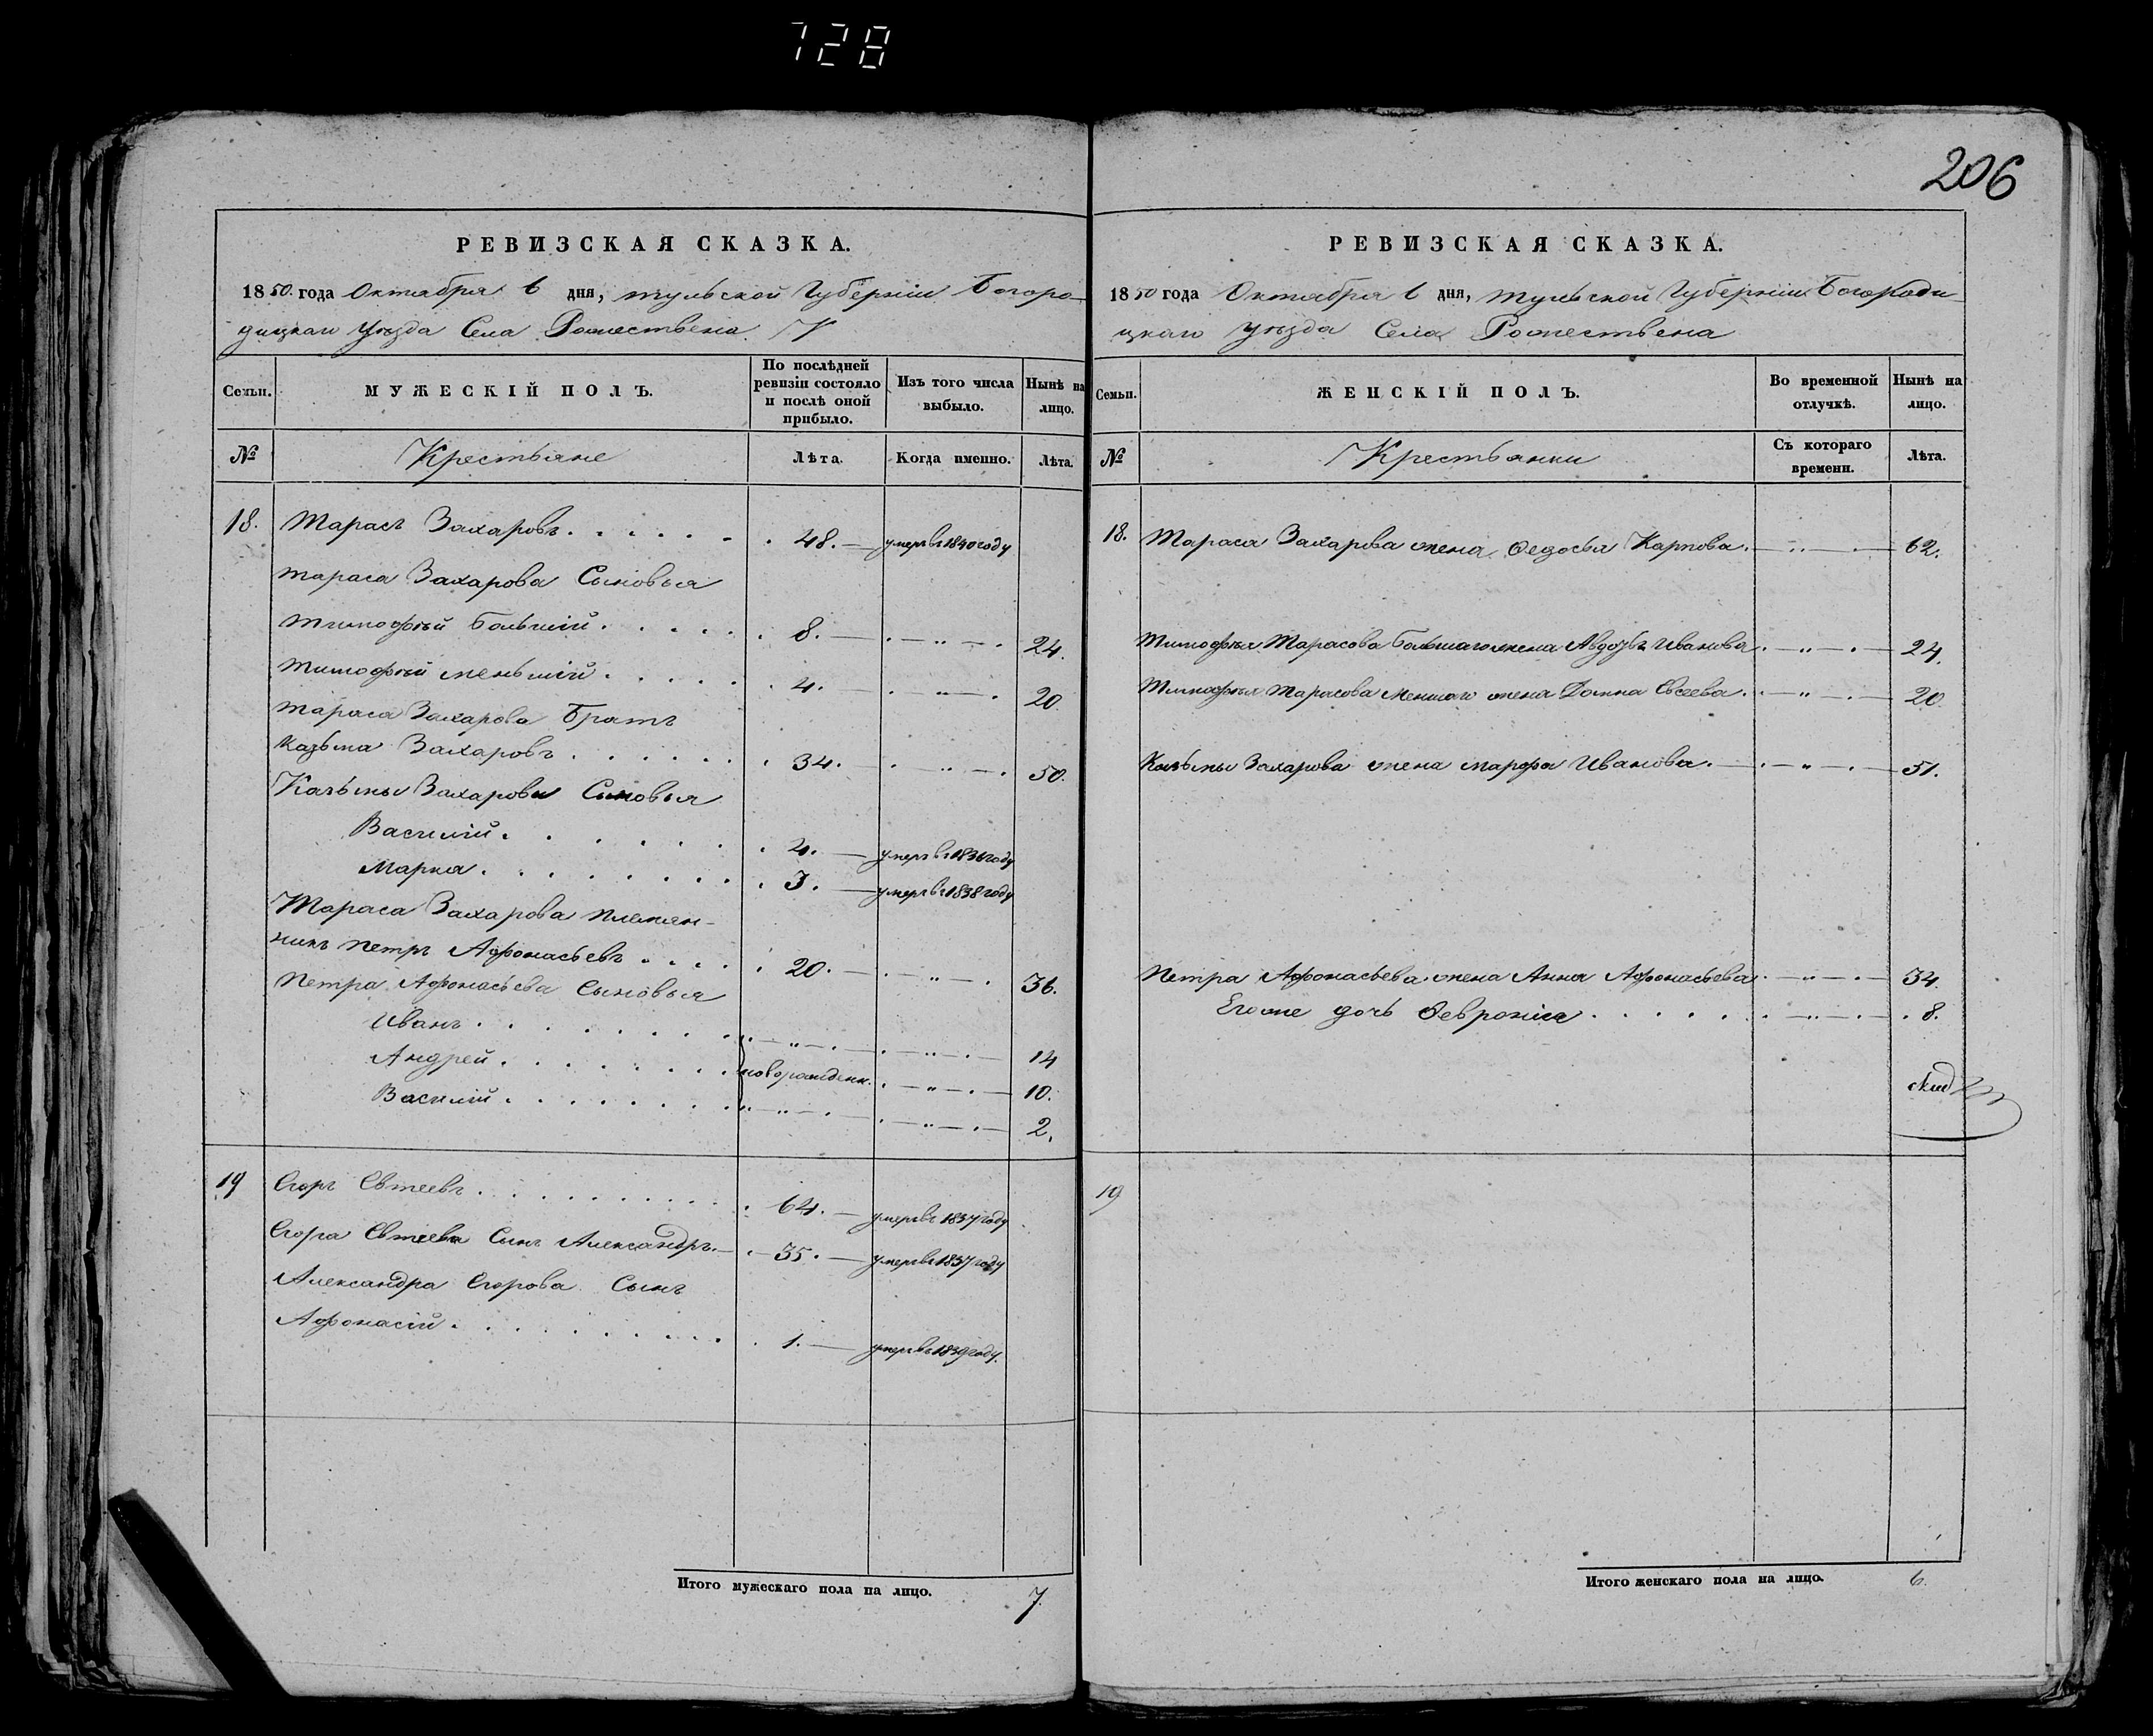 728
206
РЕВИЗСКАЯ СКАЗКА.
1850. года Октября 6 дня, тульской Губернiи Богоро-
дицкаго Уѣзда Села Рожествена
Семьи.
МУЖЕСКIЙ ПОЛЪ.
По послѣдней ревизiи состояло и послѣ оной прибыло.
Изъ того числа выбыло.
Нынѣ на лицо.
№
Крестьяне
Лѣта.
Когда именно.
Лѣта.
18. Тарасъ Захаровъ 48. умеръ въ 1840 году
Тараса Захарова Сыновья
Тимофѣй Большiй 8. 24.
Тимофѣй меньшiй 4. 20.
Тараса Захарова Братъ
Казьма Захаровъ 34. 50.
Казьмы Захарова Сыновья
Василiй 4. умеръ въ 1836 году
Марка 3. умеръ въ 1838 году
Тараса Захарова племян-
никъ Петръ Афонасьевъ 20. 36.
Петра Афонасьева Сыновья
Иванъ 14
Андрей новорожден. 10.
Василiй 2.
19 Егоръ Евтеевъ 64. умеръ въ 1837 году
Егора Евтеева Сынъ Александръ 35. умеръ въ 1837 году
Александра Егорова Сынъ
Афонасiй 1. умеръ въ 1839 году.
Итого мужескаго пола на лицо. 7.
РЕВИЗСКАЯ СКАЗКА.
1850 года Октября 6 дня, Тульской Губернiи Богороди-
цкаго Уѣзда Села Рожествена
Семьи.
ЖЕНСКIЙ ПОЛЪ.
Во временной отлучкѣ.
Нынѣ на лицо.
№
Крестьянки
Съ котораго времени.
Лѣта.
18. Тараса Захарова жена Федосья Карпова 62.
Тимофѣя Тарасова Большаго жена Авдотья Иванова 24.
Тимофѣя Тарасова меншаго жена Домна Евсеева 20.
Казьмы Захарова жена марфа Иванова 51.
Петра Афонасьева жена Анна Афонасьева 34.
Егоже дочь Февронiя 8.
19
Итого женскаго пола на лицо. 6.